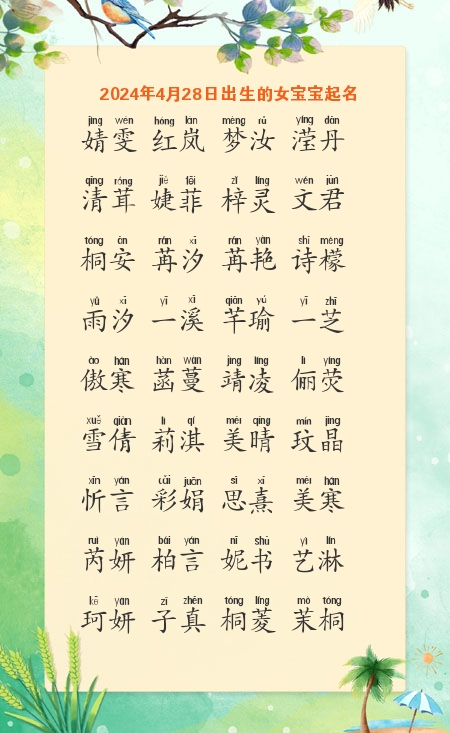 2024年4月28日出生的女宝宝起名
jìng wén hóng lán mèng rǔ yíng dān
婧雯 红岚 梦汝 滢丹
qīng róng jié fēi zǐ líng wén jūn
清茸 婕菲 梓灵 文君
tóng ān rǎn xī rǎn yàn shī méng
桐安 苒汐 苒艳 诗檬
yǔ xī yī xī qiān yú yī zhī
雨汐 一溪 芊瑜 一芝
ào hán hàn wàn jìng líng lì yíng
傲寒 菡蔓 靖凌 俪荧
xuě qiàn lì qí měi qíng mín jīng
雪倩 莉淇 美晴 玟晶
xīn yán cǎi juān sī xī měi hán
忻言 彩娟 思熹 美寒
ruì yán bǎi yán nī shū yì lín
芮妍 柏言 妮书 艺淋
kē yán zǐ zhēn tóng líng mò tóng
珂妍 子真 桐菱 茉桐